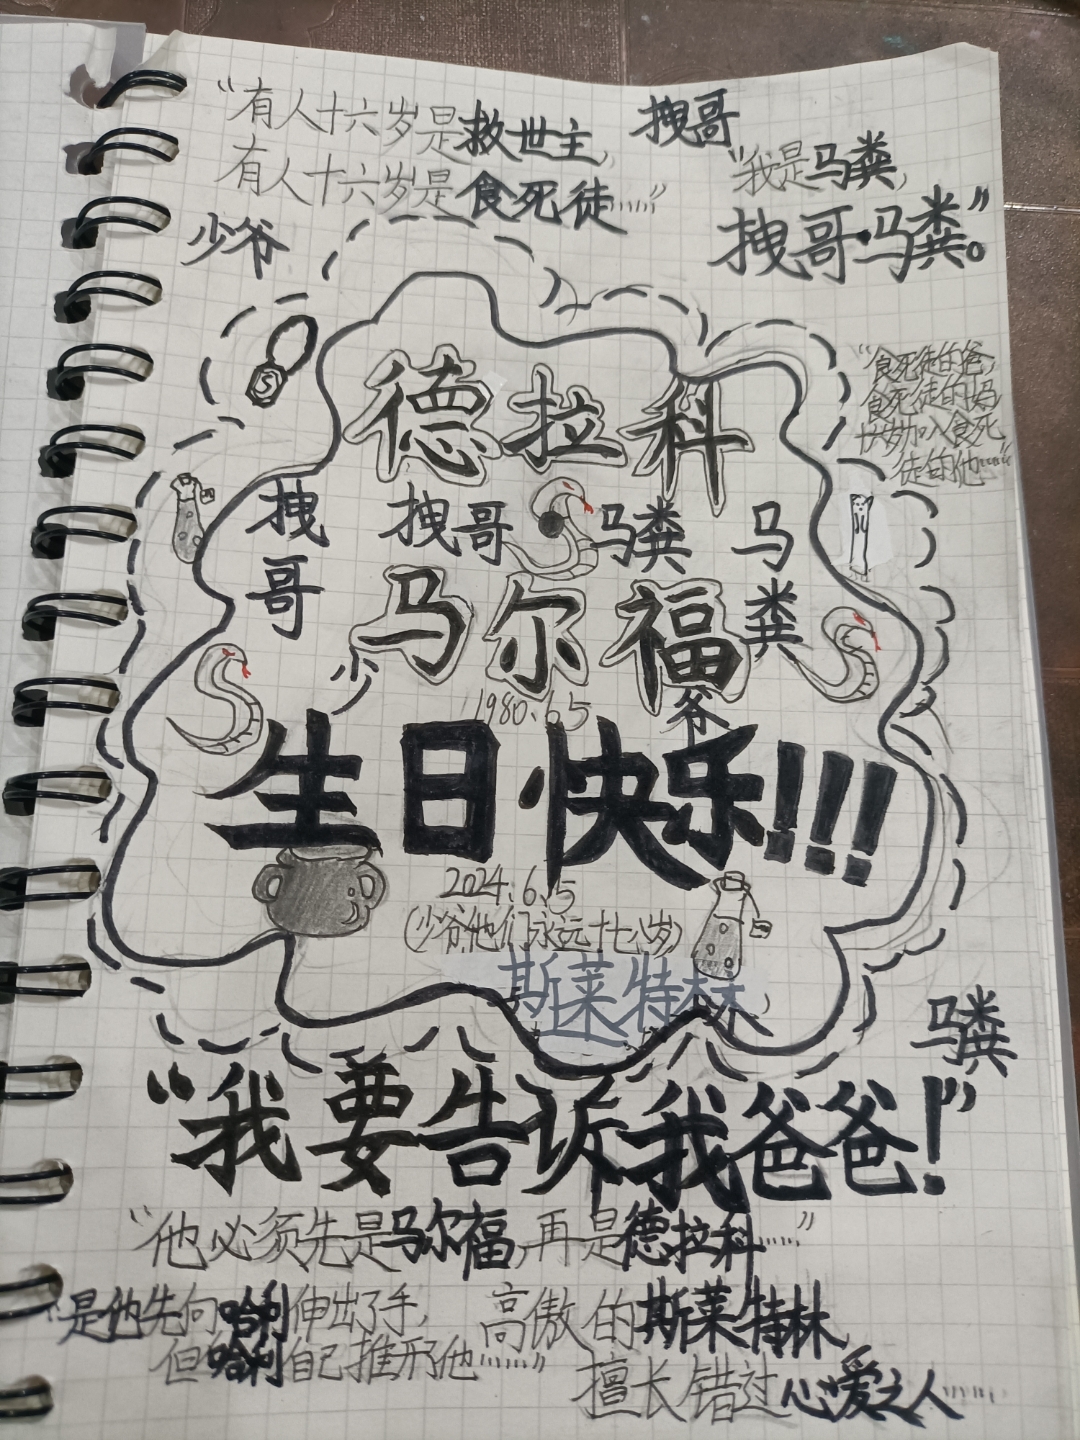 “有人十六岁是救世主,
有人十六岁是食死徒……”
拽哥
“我是马粪,
拽哥·马粪。”
少爷
S
“食死徒的爸,
食死徒的妈
十六岁加入食死
徒的他……”
德拉科
拽哥
拽哥
马粪
马粪
马尔福
少爷
1980.6.5
生日快乐!!!
2024.6.5
(少爷,他们永远十七八岁)
斯莱特林
马粪
“我要告诉我爸爸!”
“他必须先是马尔福,再是德拉科……”
“是他先向哈利伸出了手,
但哈利自己推开他……”
高傲的斯莱特林,
擅长错过心爱之人……